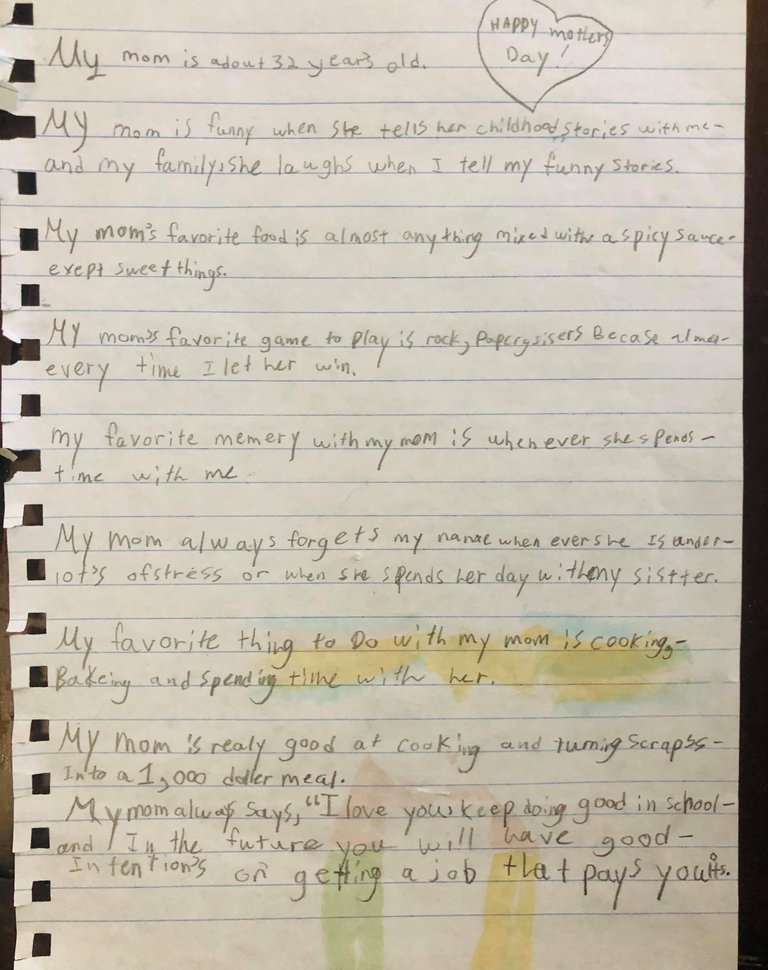 HAPPY mothers
Day!
My mom is adout 32 years old.
My mom is funny when she tells her childhood stories with me-
and my family, she laughs when I tell my funny stories.
My mom's favorite food is almost anything mixed with a spicy sauce-
exept sweet things.
My mom's favorite game to play is rock, paper, sisers Becase
every time I let her win.
my favorite memery with my mom is when ever she spends-
time with me
My mom always forgets my name when ever she Is under-
lot's of stress or when she spends her day with my sistter.
My favorite thing to Do with my mom is cooking,-
Bakeing and spending time with her.
My mom is realy good at cooking and turning scraps-
Into a 1,000 doller meal.
My mom always says, "I love you keep doing good in school-
and In the future you will have good-
Intention's on getting a job that pays you